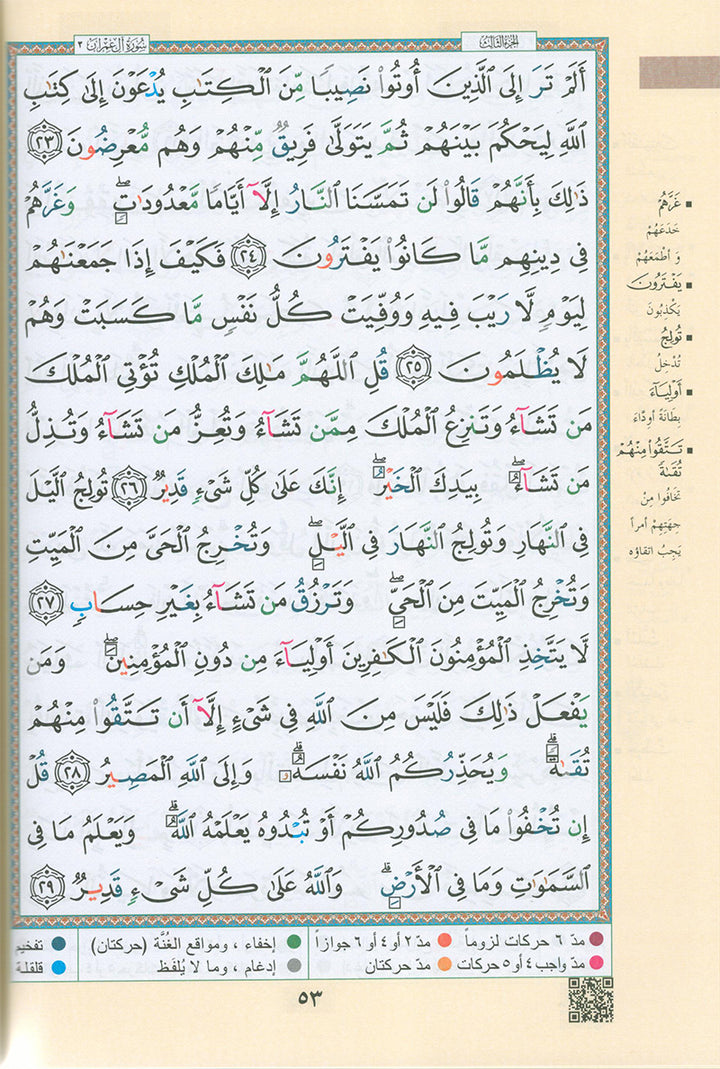 سُورَةُ آلِ عِمْرَان ٣
الجُزءُ الثَّالِث
أَلَمْ تَرَ إِلَى الَّذِينَ أُوتُوا۟ نَصِيبًا مِّنَ الْكِتَـٰبِ يُدْعَوْنَ إِلَىٰ كِتَـٰبِ
اللَّهِ لِيَحْكُمَ بَيْنَهُمْ ثُمَّ يَتَوَلَّىٰ فَرِيقٌ مِّنْهُمْ وَهُم مُّعْرِضُونَ ٢٣
ذَٰلِكَ بِأَنَّهُمْ قَالُوا۟ لَن تَمَسَّنَا النَّارُ إِلَّآ أَيَّامًا مَّعْدُودَٰتٍ ۖ وَغَرَّهُمْ
فِى دِينِهِم مَّا كَانُوا۟ يَفْتَرُونَ ٢٤ فَكَيْفَ إِذَا جَمَعْنَـٰهُمْ
لِيَوْمٍ لَّا رَيْبَ فِيهِ وَوُفِّيَتْ كُلُّ نَفْسٍ مَّا كَسَبَتْ وَهُمْ
لَا يُظْلَمُونَ ٢٥ قُلِ اللَّهُمَّ مَـٰلِكَ الْمُلْكِ تُؤْتِى الْمُلْكَ
مَن تَشَآءُ وَتَنزِعُ الْمُلْكَ مِمَّن تَشَآءُ وَتُعِزُّ مَن تَشَآءُ وَتُذِلُّ
مَن تَشَآءُ ۖ بِيَدِكَ الْخَيْرُ ۖ إِنَّكَ عَلَىٰ كُلِّ شَىْءٍ قَدِيرٌ ٢٦ تُولِجُ الَّيْلَ
فِى النَّهَارِ وَتُولِجُ النَّهَارَ فِى الَّيْلِ ۖ وَتُخْرِجُ الْحَىَّ مِنَ الْمَيِّتِ
وَتُخْرِجُ الْمَيِّتَ مِنَ الْحَىِّ ۖ وَتَرْزُقُ مَن تَشَآءُ بِغَيْرِ حِسَابٍ ٢٧
لَّا يَتَّخِذِ الْمُؤْمِنُونَ الْكَـٰفِرِينَ أَوْلِيَآءَ مِن دُونِ الْمُؤْمِنِينَ ۖ وَمَن
يَفْعَلْ ذَٰلِكَ فَلَيْسَ مِنَ اللَّهِ فِى شَىْءٍ إِلَّآ أَن تَتَّقُوا۟ مِنْهُمْ
تُقَىٰةً ۗ وَيُحَذِّرُكُمُ اللَّهُ نَفْسَهُ ۗ وَإِلَى اللَّهِ الْمَصِيرُ ٢٨ قُلْ
إِن تُخْفُوا۟ مَا فِى صُدُورِكُمْ أَوْ تُبْدُوهُ يَعْلَمْهُ اللَّهُ ۗ وَيَعْلَمُ مَا فِى
السَّمَـٰوَٰتِ وَمَا فِى الْأَرْضِ ۗ وَاللَّهُ عَلَىٰ كُلِّ شَىْءٍ قَدِيرٌ ٢٩
■ غَرَّهُمْ
خَدَعَهُمْ
وَ أَطْمَعَهُمْ
■ يَفْتَرُونَ
يَكْذِبُونَ
■ تُولِجُ
تُدْخِلُ
■ أَوْلِيَآءَ
بِطَانَةً أَوِدَّاءَ
■ تَتَّقُوا۟ مِنْهُمْ
تُقَىٰةً
تَخَافُوا مِنْ
جِهَتِهِمْ أَمراً
يَجِبُ اتقاؤه
مدّ ٦ حركات لزوماً مدّ ٢ أو ٤ أو ٦ جوازاً إخفاء ، ومواقع الغُنَّة (حركتان) تفخيم
مدّ واجب ٤ أو ٥ حركات مدّ حركتان إدغام ، وما لا يُلفَظ قلقلة
٥٣